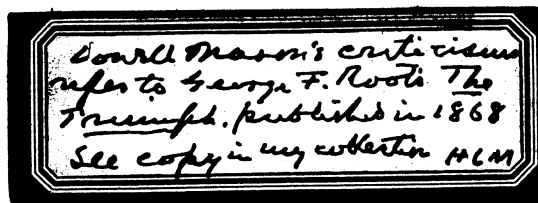 Lowell Mason's criticism
refers to George F. Root's The
Triumph. published in 1868
See copy in my collection HLM